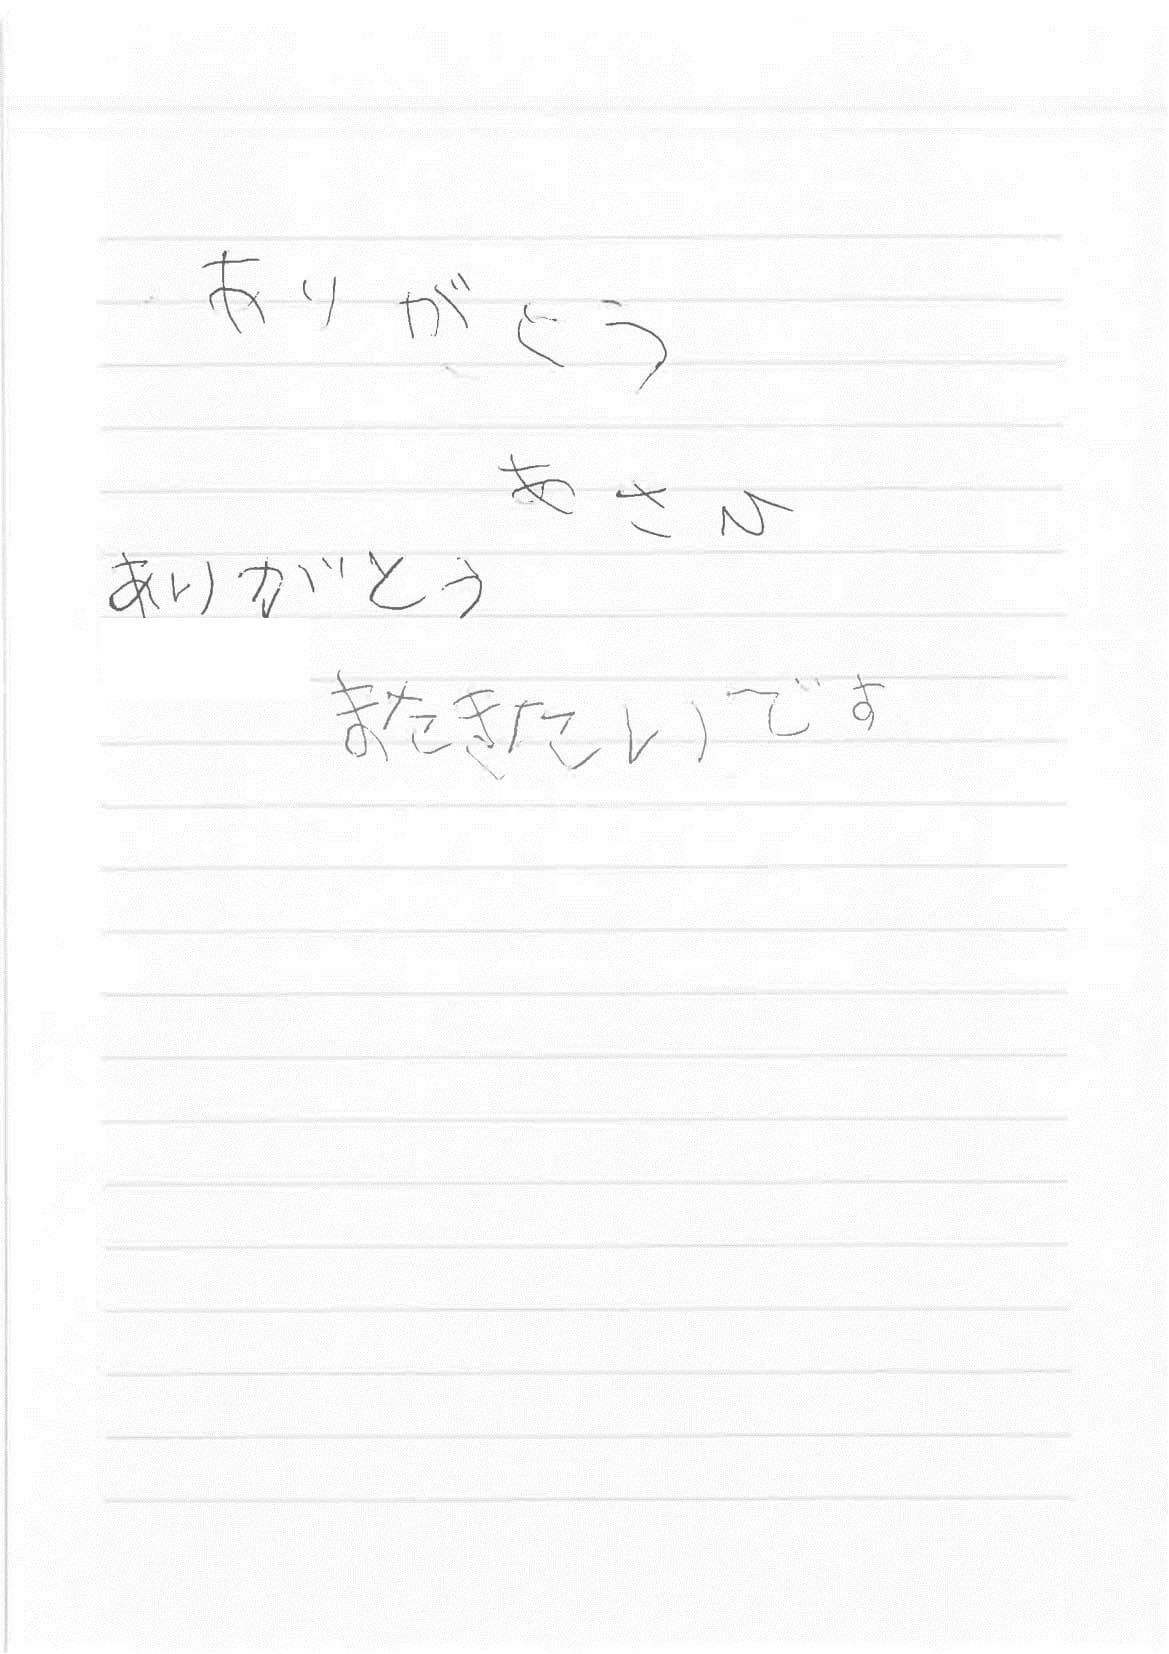 ありがとう
あさひ
ありがとう
またきたいです